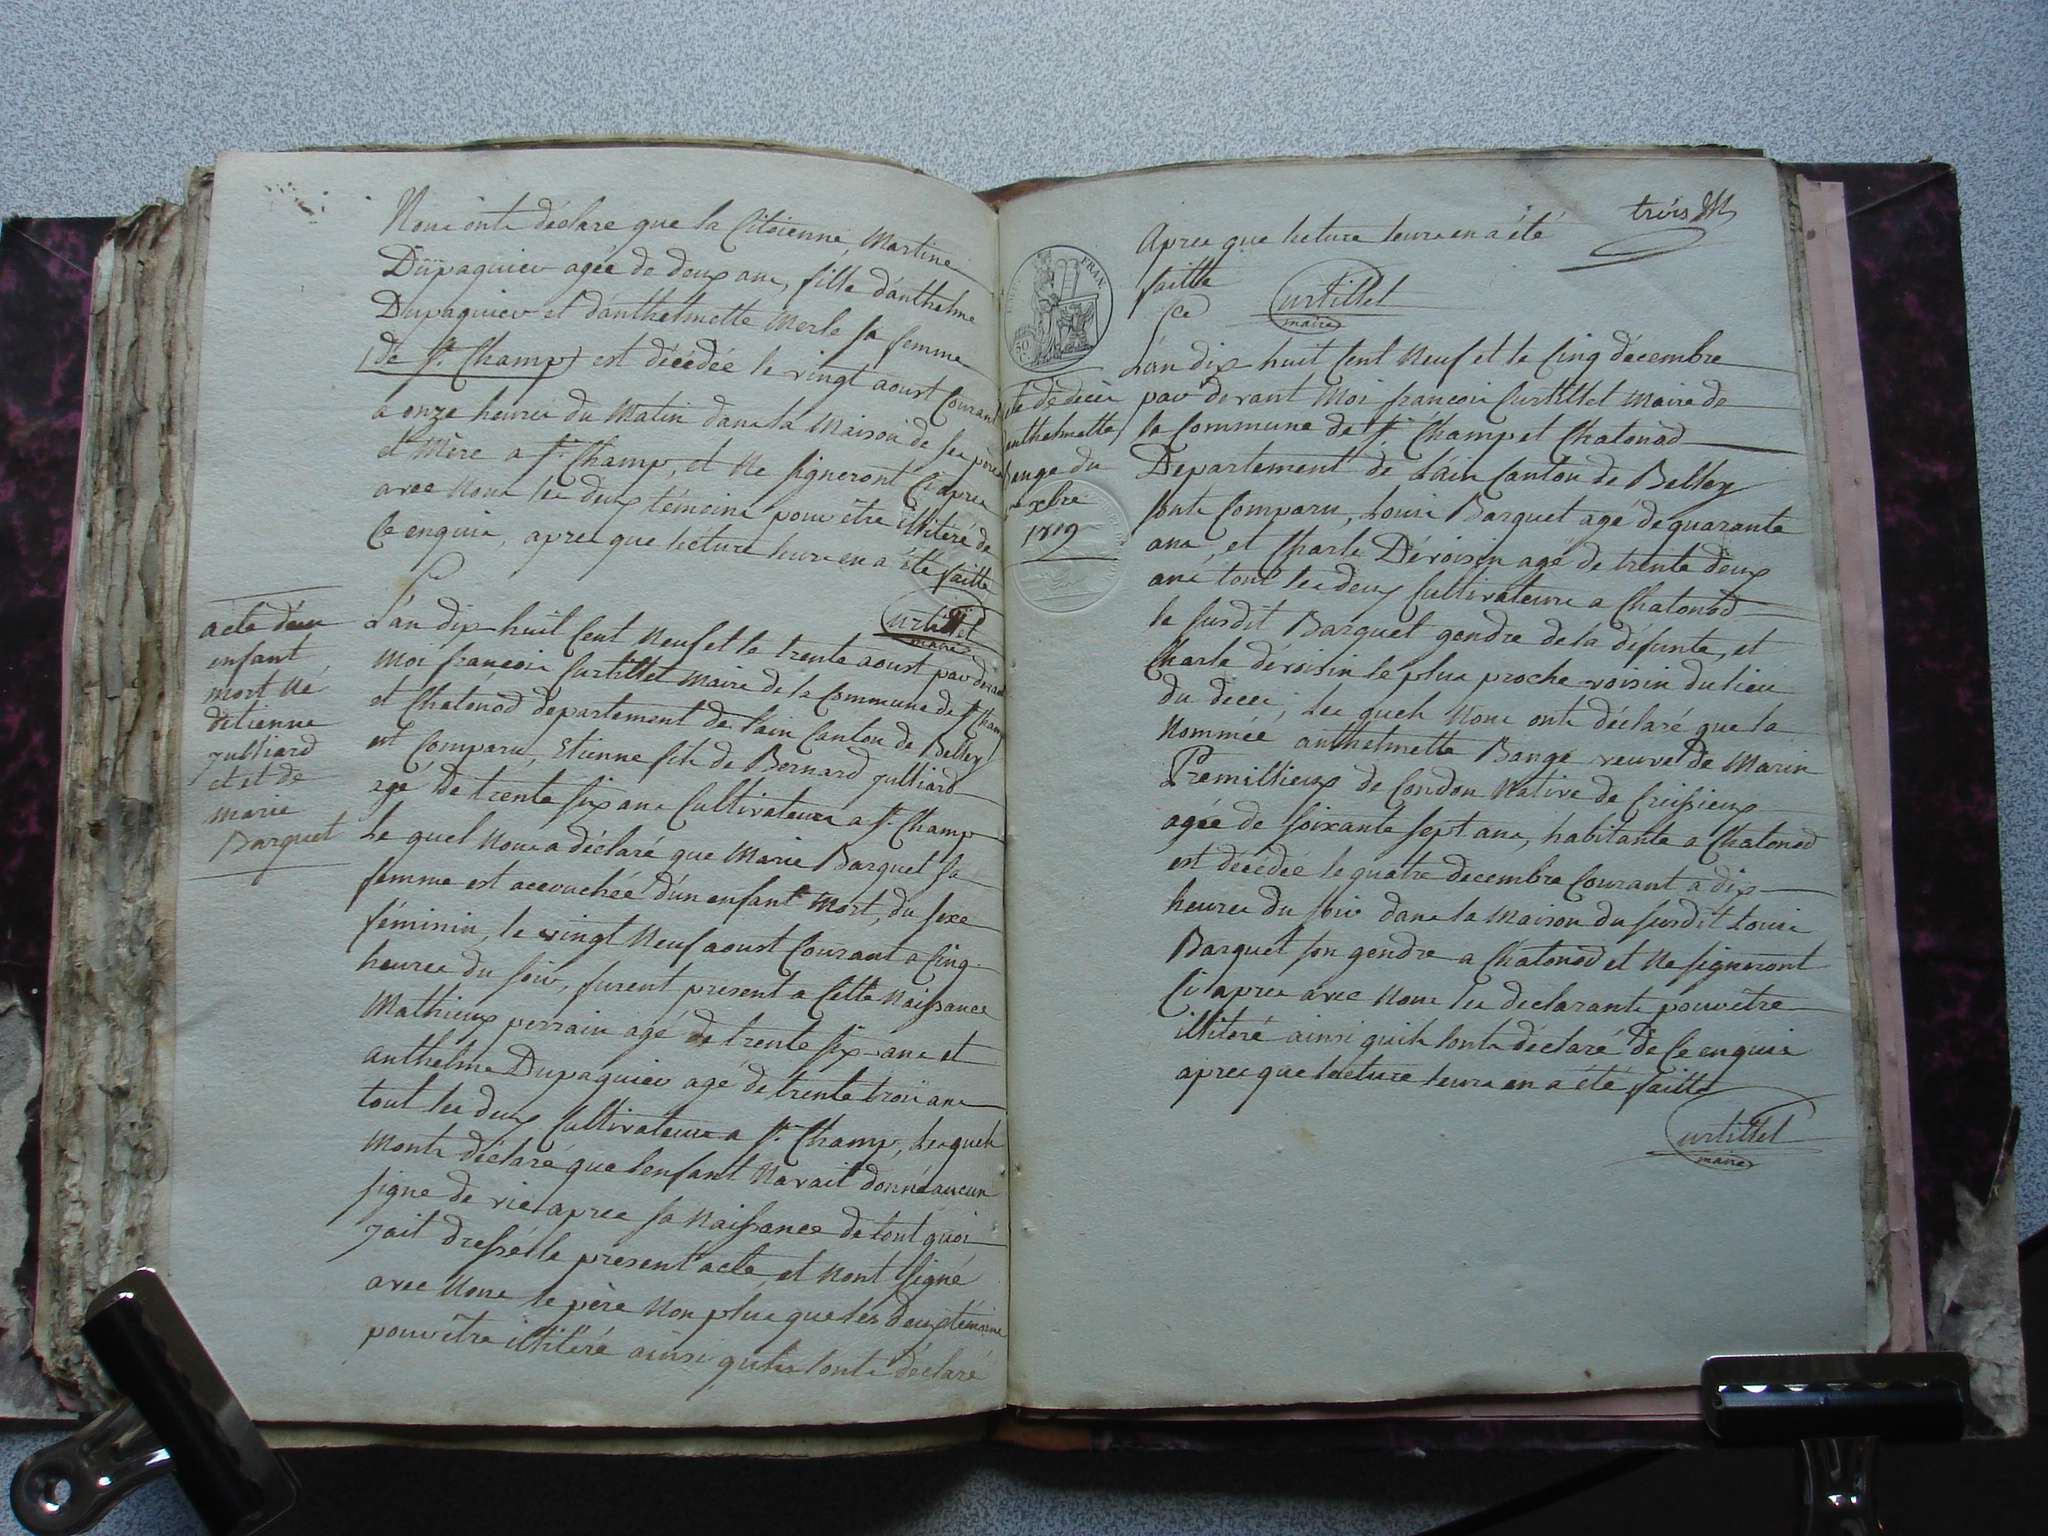 Nous ont déclaré que la Citoienne Martine
Dupaquier agée de deux ans, fille d'anthelme
Dupaquier et d'anthelmette Merle sa femme
(de St. Champ) est décédée le vingt aoust Courant
a onze heures du Matin dans la Maison de ses père
et Mère a St. Champ, et Ne signeront Ci apres
avec Nous les deux témoins pour être illitéré de
Ce enquis, apres que lécture leurs en a été faitte
Curtillet
maire
acte d'un
enfant
mort Né
d'étienne
julliard
et et de
marie
Barquet
L'an dix huit Cent Neuf et le trente aoust par devant
Moi françois Curtillet Maire de la Commune de St Champ
et Chatonod département de l'ain Canton de Belley
est Comparu, Etienne fils de Bernard julliard
agé de trente six ans Cultivateur a St. Champ
Le quel Nous a déclaré que Marie Barquet sa
femme est accouchée d'un enfant Mort, du sexe
féminin, le vingt Neuf aoust Courant a Cinq
heures du soir, furent present a Cette Naissance
Mathieux perrain agé de trente six ans et
anthelme Dupaquier agé de trente trois ans
tout les deux Cultivateurs a St. Champ, Lesquels
M'ont déclaré que l'enfant N'avait donné aucun
signe de vie apres sa Naissance de tout quoi
j'ait dressé le present acte, et N'ont signé
avec Nous le père Non plus que les deux témoins
pour être illitéré ainsi qu'ils l'ont déclaré
trois
Apres que lecture leurs en a été
faitte
Curtillet
maire
FRAN.
50
C.
de décès
anthelmette
Bange du
xbre
1809
L'an dix huit Cent Neuf et le Cinq décembre
par devant Moi françois Curtillet Maire de
la Commune de St. Champ et Chatonod
Departement de L'ain Canton de Belley
sont Comparu, Louis Barquet agé de quarante
ans, et Charle Dévoisin agé de trente deux
ans tout les deux Cultivateurs a Chatonod
le susdit Barquet gendre de la defunte, et
Charle dévoisin le plus proche voisin du lieu
du décès, Les quels Nous ont déclaré que la
Nommée anthelmette Bange veuve de Marin
Premillieux de Condon Native de Creissieux
agée de soixante sept ans, habitante a Chatonod
est décédée le quatre decembre Courant a dix
heures du soir dans la Maison du susdit Louis
Barquet son gendre a Chatonod et Ne signeront
Ci apres avec Nous les declarants pour être
illiteré ainsi quils l'ont déclaré de Ce enquis
apres que lecture leurs en a été faitte
Curtillet
maire